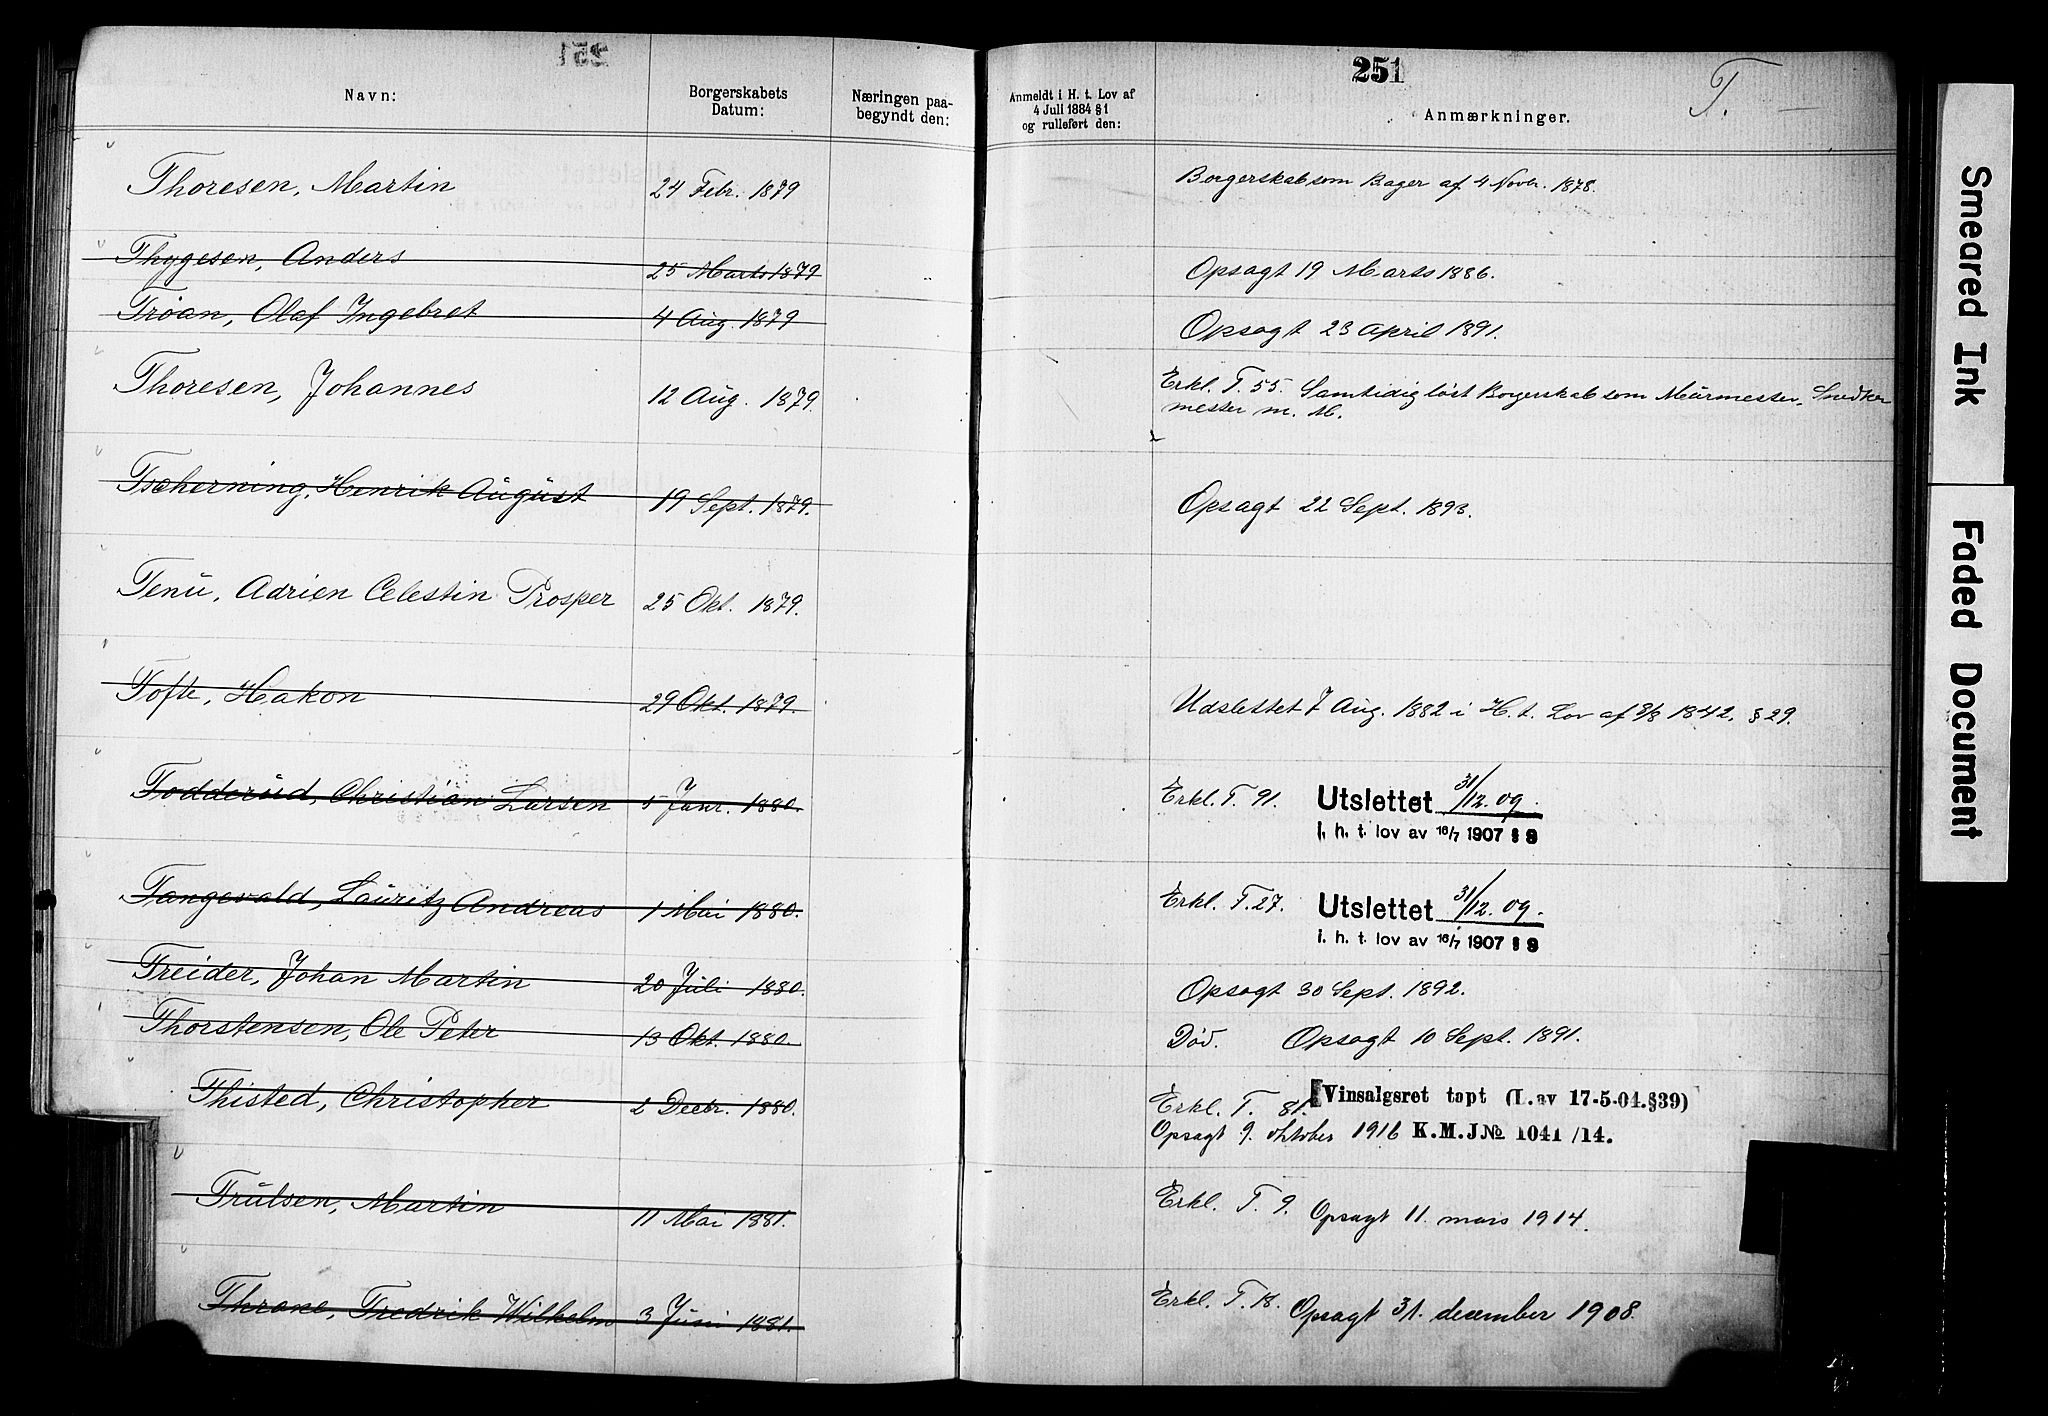 251
251
T.
Navn:
Borgerskabets
Datum:
Næringen paa-
begyndt den:
Anmeldt i H. t. Lov af
4 Juli 1884 § 1
og rulleført den:
Anmærkninger.
Thoresen, Martin 24 Febr. 1879 Borgerskab som Bager af 4 Novbr. 1878.
Thygesen, Anders 25 Marts 1879 Opsagt 19 Marts 1886.
Trøan, Olaf Ingebret 4 Aug. 1879 Opsagt 23 April 1891.
Thoresen, Johannes 12 Aug. 1879. Erkl. T. 55. Samtidig løst Borgerskab som Murmester, Snedker
mester m. M.
Tscherning, Henrik August 19 Sept. 1879. Opsagt 22 Sept. 1893.
Tenu, Adrien Celestin Prosper 25 Okt. 1879.
Tofte, Hakon 29 Okt. 1879. Udslettet 7 Aug. 1882 i H. t. Lov af 8/8 1842. § 29.
Todderud, Christian Larsen 5 Janr. 1880. Erkl. T. 91. Utslettet 31/12. 09.
i. h. t. lov av 16/7 1907 § 9
Tangevald, Lauritz Andreas 1 Mai 1880. Erkl. T. 27. Utslettet 31/12. 09.
i. h. t. lov av 16/7 1907 § 9
Treider, Johan Martin 20 Juli 1880. Opsagt 30 Sept. 1892.
Thorstensen, Ole Peter 13 Okt. 1880. Død. Opsagt 10 Sept. 1891.
Thisted, Christopher 2 Decbr. 1880. Erkl. T. 81. Vinsalgsret tapt (L. av 17-5-04. § 39)
Opsagt 9. oktober 1916 K. M. J № 1041/14.
Trulsen, Martin 11 Mai 1881. Erkl. T. 9. Opsagt 11. mars 1914.
Throne, Fredrik Wilhelm 3 Juni 1881. Erkl. T. 18. Opsagt 31. december 1908.
Smeared Ink
Faded Document